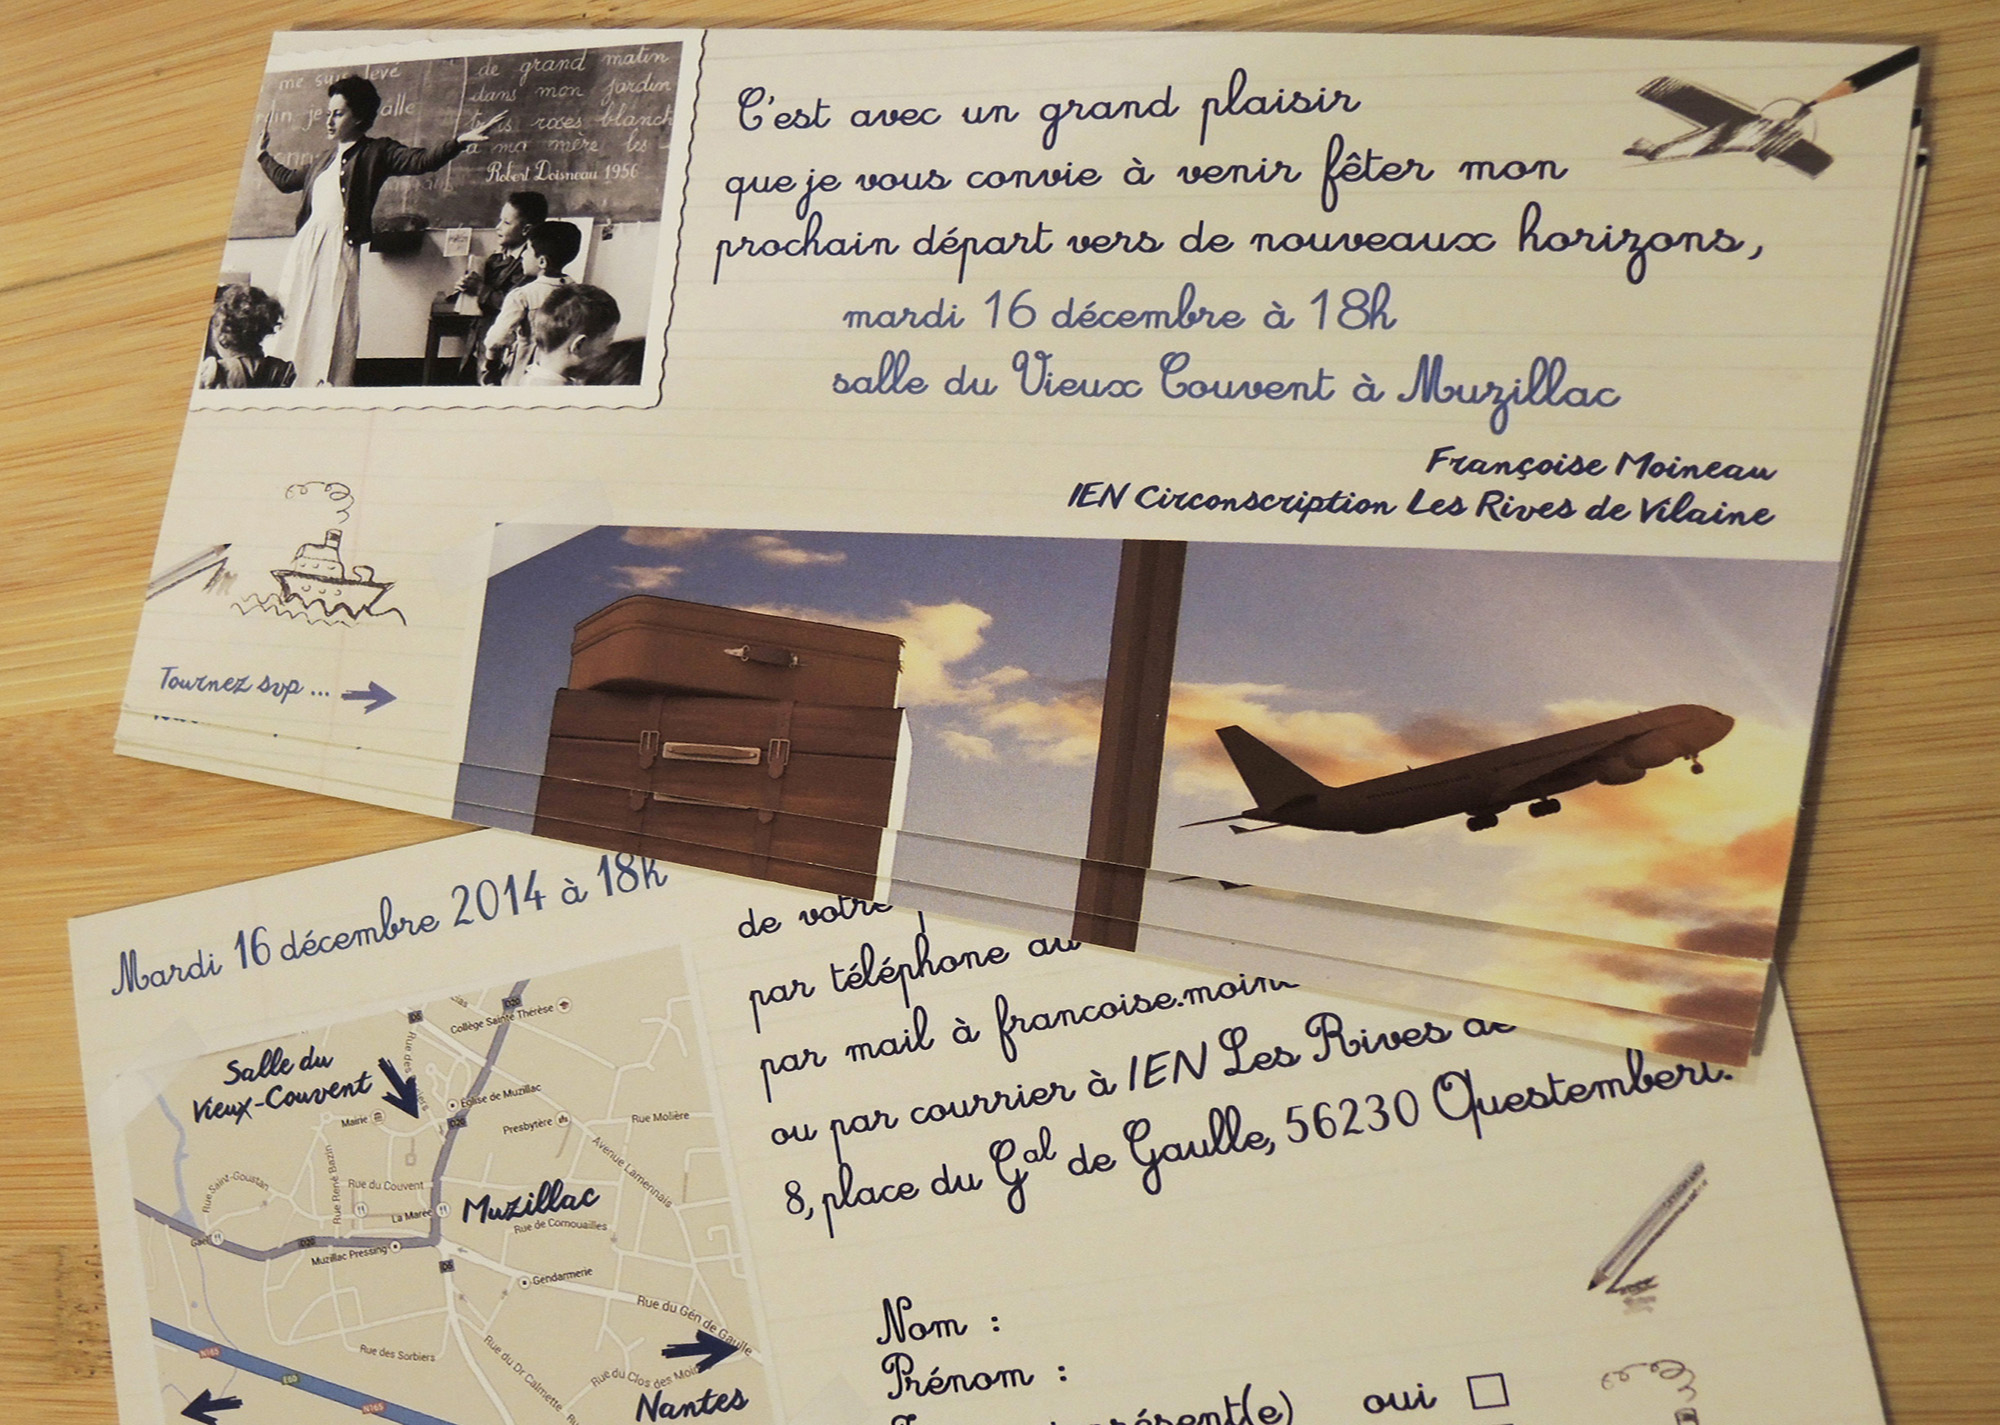 me suis levé
de grand matin
dans mon jardin
trois roses blanch
a ma mère les
Robert Doisneau 1956
C'est avec un grand plaisir
que je vous convie à venir fêter mon
prochain départ vers de nouveaux horizons,
mardi 16 décembre à 18h
salle du Vieux Couvent à Muzillac
Françoise Moineau
IEN Circonscription Les Rives de Vilaine
Tournez svp ...
Mardi 16 décembre 2014 à 18h
de votre
par téléphone au
par mail à francoise.moin
ou par courrier à IEN Les Rives de
8, place du Gal de Gaulle, 56230 Questembert.
Salle du
Vieux-Couvent
D5
D20
Collège Sainte Thérèse
Mairie
Eglise de Muzillac
D20
Presbytère
Rue Molière
Avenue Lamennais
Rue Saint-Goustan
Rue René Bazin
Rue du Couvent
La Marée
Muzillac
Rue de Cornouailles
D20
Muzillac Pressing
D5
Gendarmerie
Rue du Gén de Gaulle
Rue des Sorbiers
Rue du Dr Calmette
Rue du Clos des Moin
N165
E60
N165
Nantes
Nom :
Prénom :
présent(e) oui